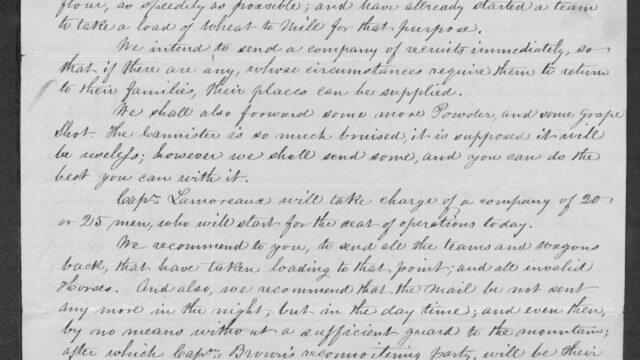 flour, as speedily as possible; and have allready started a team
to take a load of wheat to Mill for that purpose.
We intend to send a company of recruits immediately, so
that if there are any, whose circumstances require them to return
to their families, their places can be supplied.
We shall also forward some more Powder, and some Grape
Shot. The cannister is so much bruised, it is supposed it will
be useless; however we shall send some, and you can do the
best you can with it.
Capn. Lamoreaux will take charge of a company of 20
or 25 men, who will start for the seat of operations today.
We recommend to you, to send all the teams and wagons
back, that have taken loading to that point; and all invalid
Horses. And also, we recommend that the Mail be not sent
any more in the night, but in the day time; and even then,
by no means without a sufficient guard to the mountain;
after which Capn. Brown's reconnoitering party, will be their